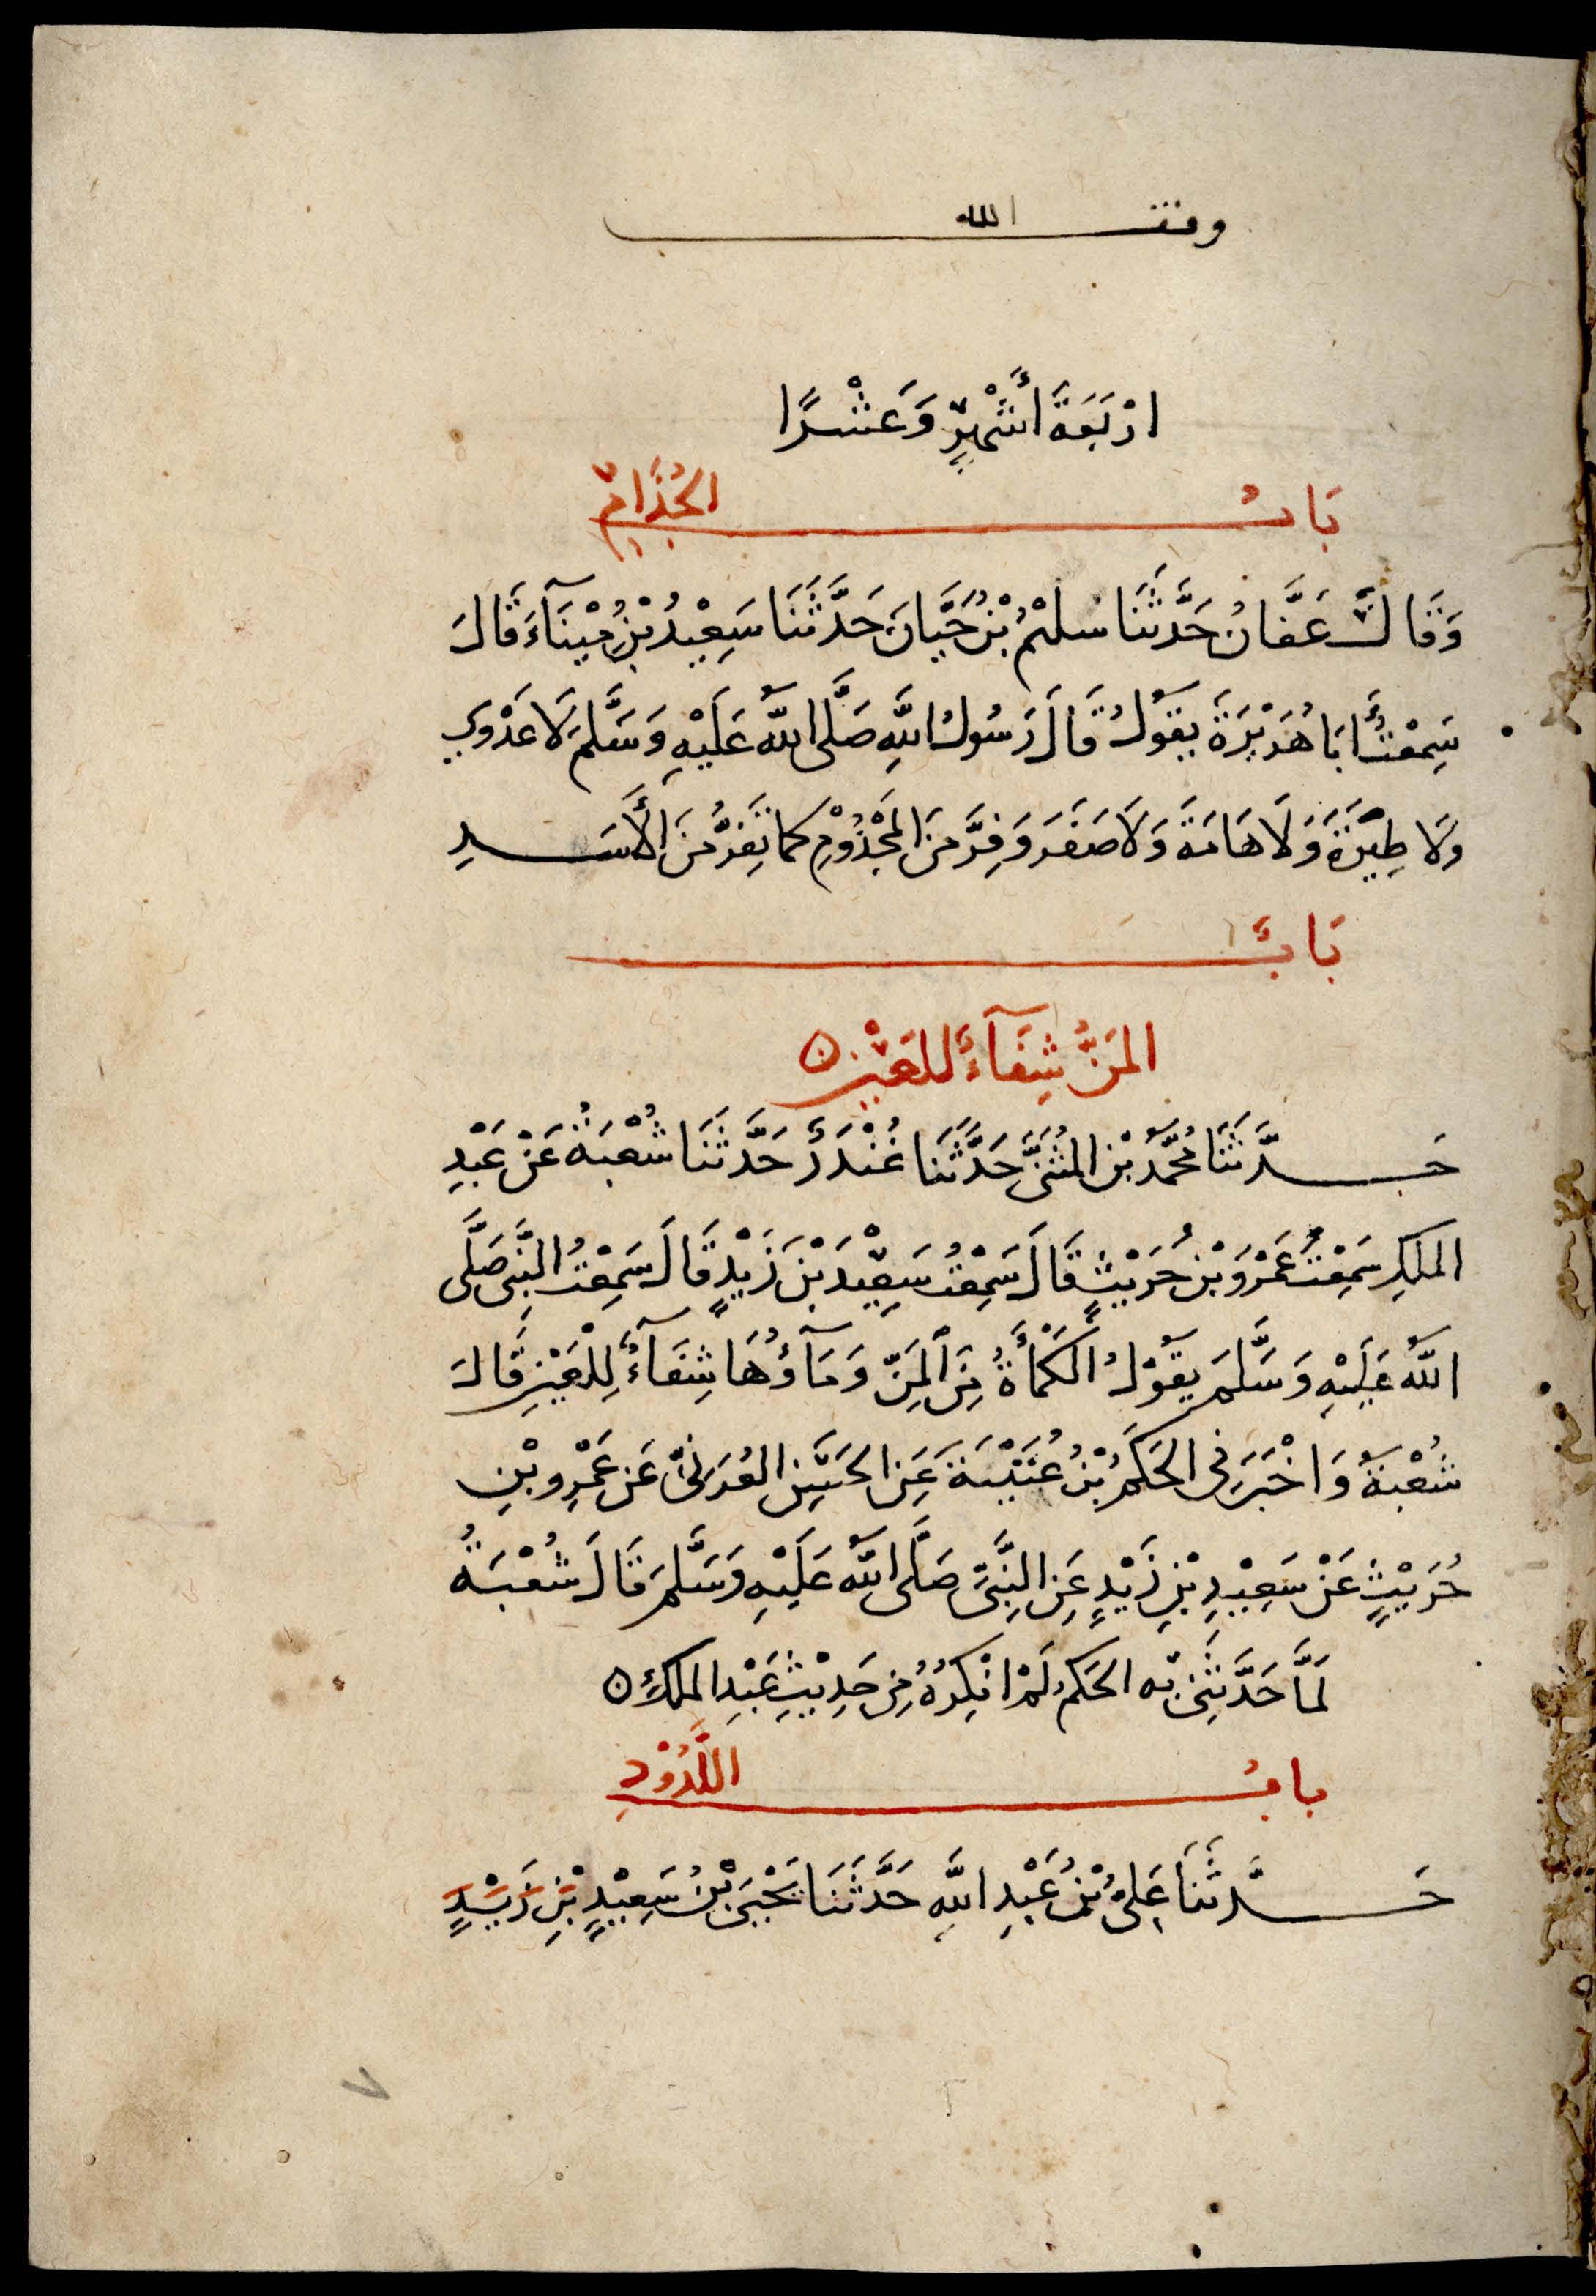 وقف الله
ارْبَعَةَ أَشْهُرٍ وَعَشْرًا
بَابُ الجُذَامِ
وَقَالَ عَفَّانُ حَدَّثَنَا سلِيْمُ بْنُ حَيَّانَ حَدَّثَنَا سَعِيْدُ بْنُ مِيْنَآءَ قَالَ
سَمِعْتُ أَبَا هُرَيْرَةَ يَقُولُ قَالَ رَسُولُ اللَّهِ صَلَّى اللَّهُ عَلَيْهِ وَسَلَّمَ لَا عَدْوي
وَلَا طِيَرَةَ وَلَا هَامَةَ وَلَا صَفَرَ وَفِرَّ مِنَ المَجْذُوْمِ كما تَفِرُّ مِنَ الأَسَدِ
بَابٌ
المَنُّ شِفَآءٌ للعَيْنِ ۝
حَدَّثَنَا مُحَمَّدُ بْنُ المُثَنَّى حَدَّثَنَا غُنْدَرٌ حَدَّثَنَا شُعْبَةُ عَنْ عَبْدِ
الملكِ سَمِعْتُ عَمْرَو بْنَ حُرَيْثٍ قَالَ سَمِعْتُ سَعِيْدَ بْنَ زَيْدٍ قَالَ سَمِعْتُ النَّبِيَّ صَلَّى
اللَّهُ عَلَيْهِ وَسَلَّمَ يَقُوْلُ الكَمْأَةُ مِنَ المَنِّ وَمَآؤُهَا شِفَآءٌ لِلْعَيْنِ قَالَ
شُعْبَةُ وَاخْبَرَنِي الحَكَمُ بْنُ عُتَيْبَةَ عَنِ الحَسَنِ العُرَنِيِّ عَنْ عَمْرِو بْنِ
حُرَيْثٍ عَنْ سَعِيْدِ بْنِ زَيْدٍ عَنِ النَّبِيِّ صَلَّى اللَّهُ عَلَيْهِ وَسَلَّمَ قَالَ شُعْبَةُ
لَمَّا حَدَّثَنِي بِه الحَكَمُ لَمْ انْكِرْهُ مِنْ حَدِيْثِ عَبْدِ الملكِ ۝
بابُ اللَّدُوْدِ
حَدَّثَنَا عَلِيُّ بْنُ عَبْدِ اللَّهِ حَدَّثَنَا يَحْيَى بْنُ سَعِيْدٍ بْنِ زَيْدٍ
٧